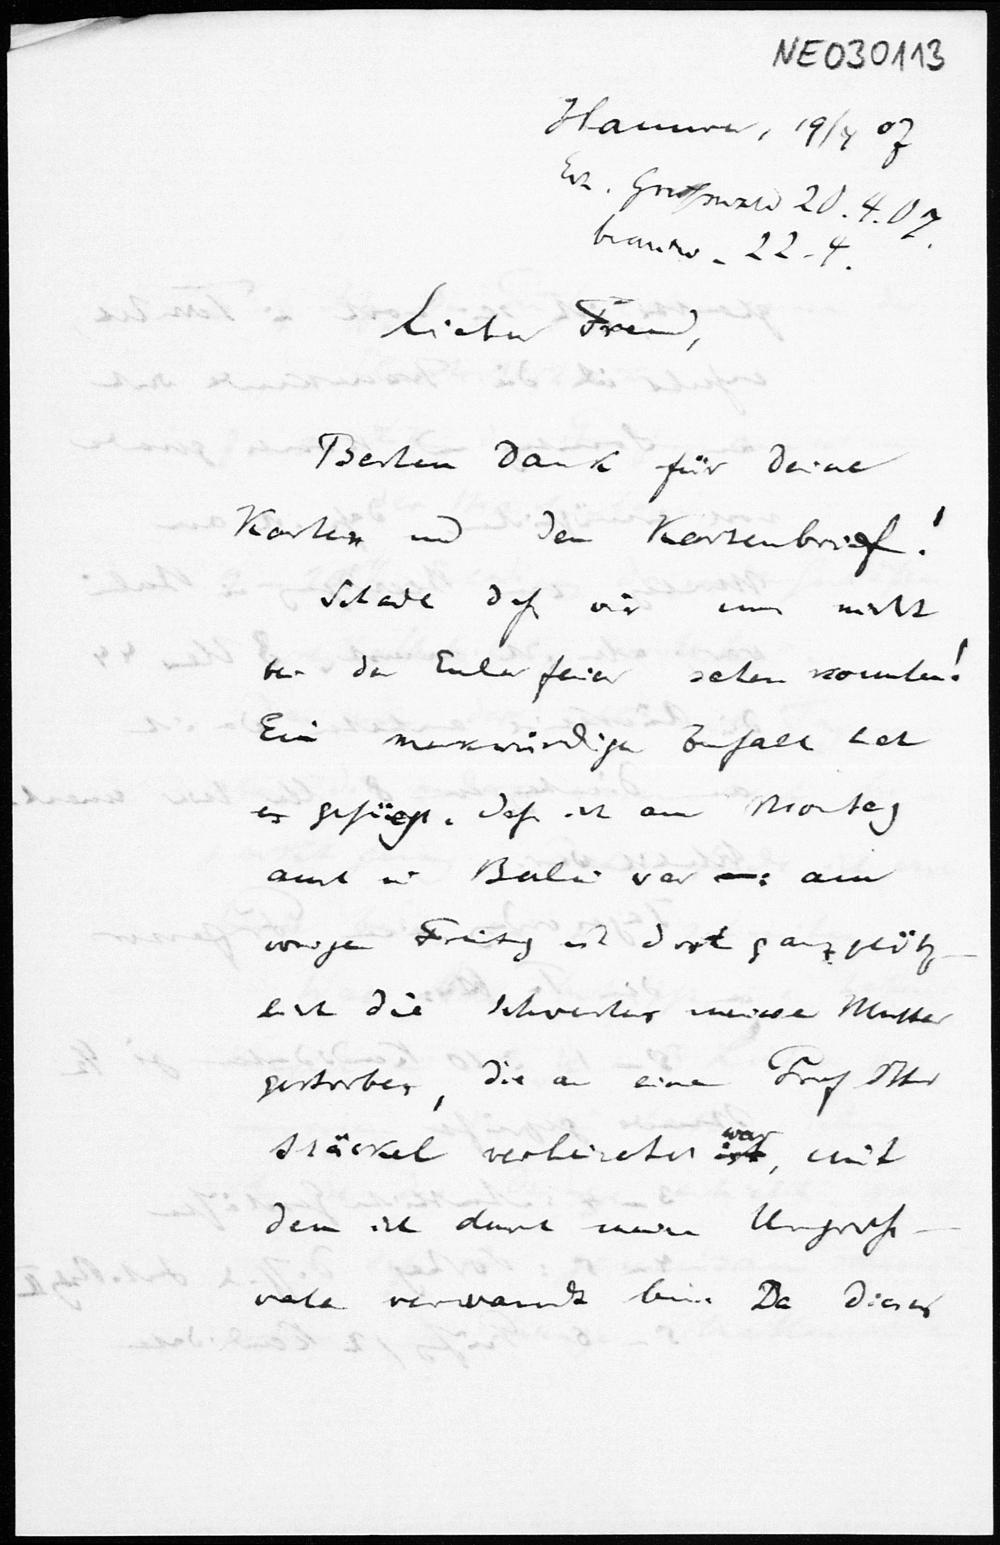 NE030113
Hannover, 19/4 07
Erh. Greifswald 20.4.07.
beantw. 22.4.
Lieber Freund,
Besten Dank für deine
Karten und den Kartenbrief!
Schade daß wir uns nicht
bei der Eulerfeier sehen konnten!
Ein merkwürdiger Zufall hat
es gefügt, daß ich am Montag
auch in Berlin war: am
vorigen Freitag ist dort ganz plötz-
lich die Schwester meiner Mutter
gestorben, die an einen Prof
Stäckel verheiratet war, mit
dem ich durch meinen Urgroß-
vater verwandt bin. Da dieses